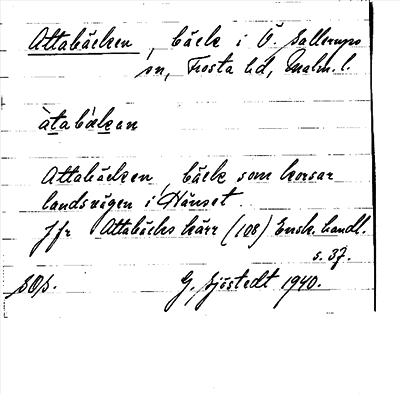 Attabäcken, bäck i Ö. Sallerups
sn, Frosta hd, Malm. l.
àtabækan
Attabäcken, bäck som korsar
landsvägen i Hänset.
Jfr Attabäcks kärr (108) Ensk. handl.
s. 37.
SOs.
G. Sjöstedt 1940.